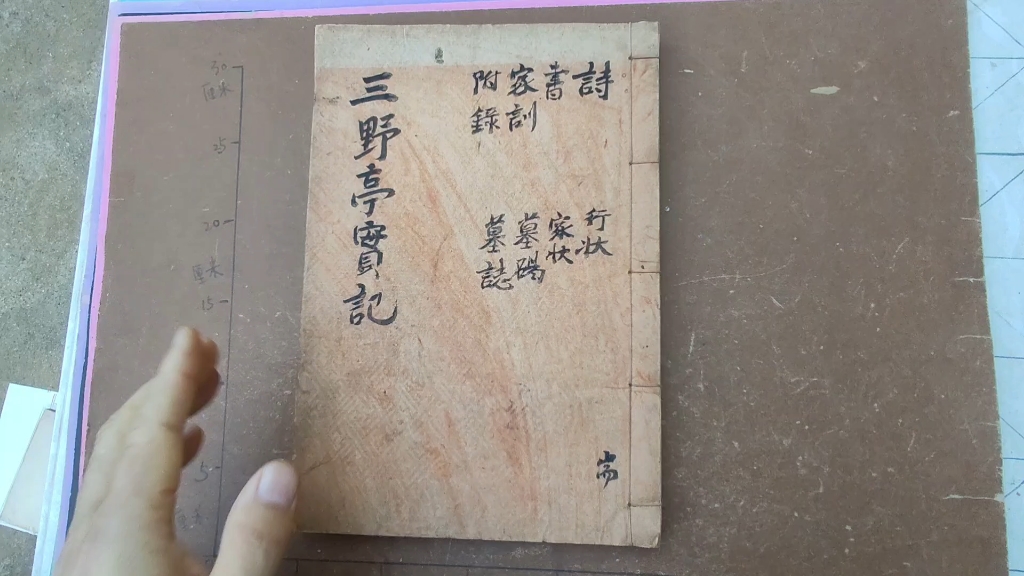 詩
書
家訓
附錄
行状
家状
墓碣
墓誌
三野亭實記
耑
30
25
20
15
5